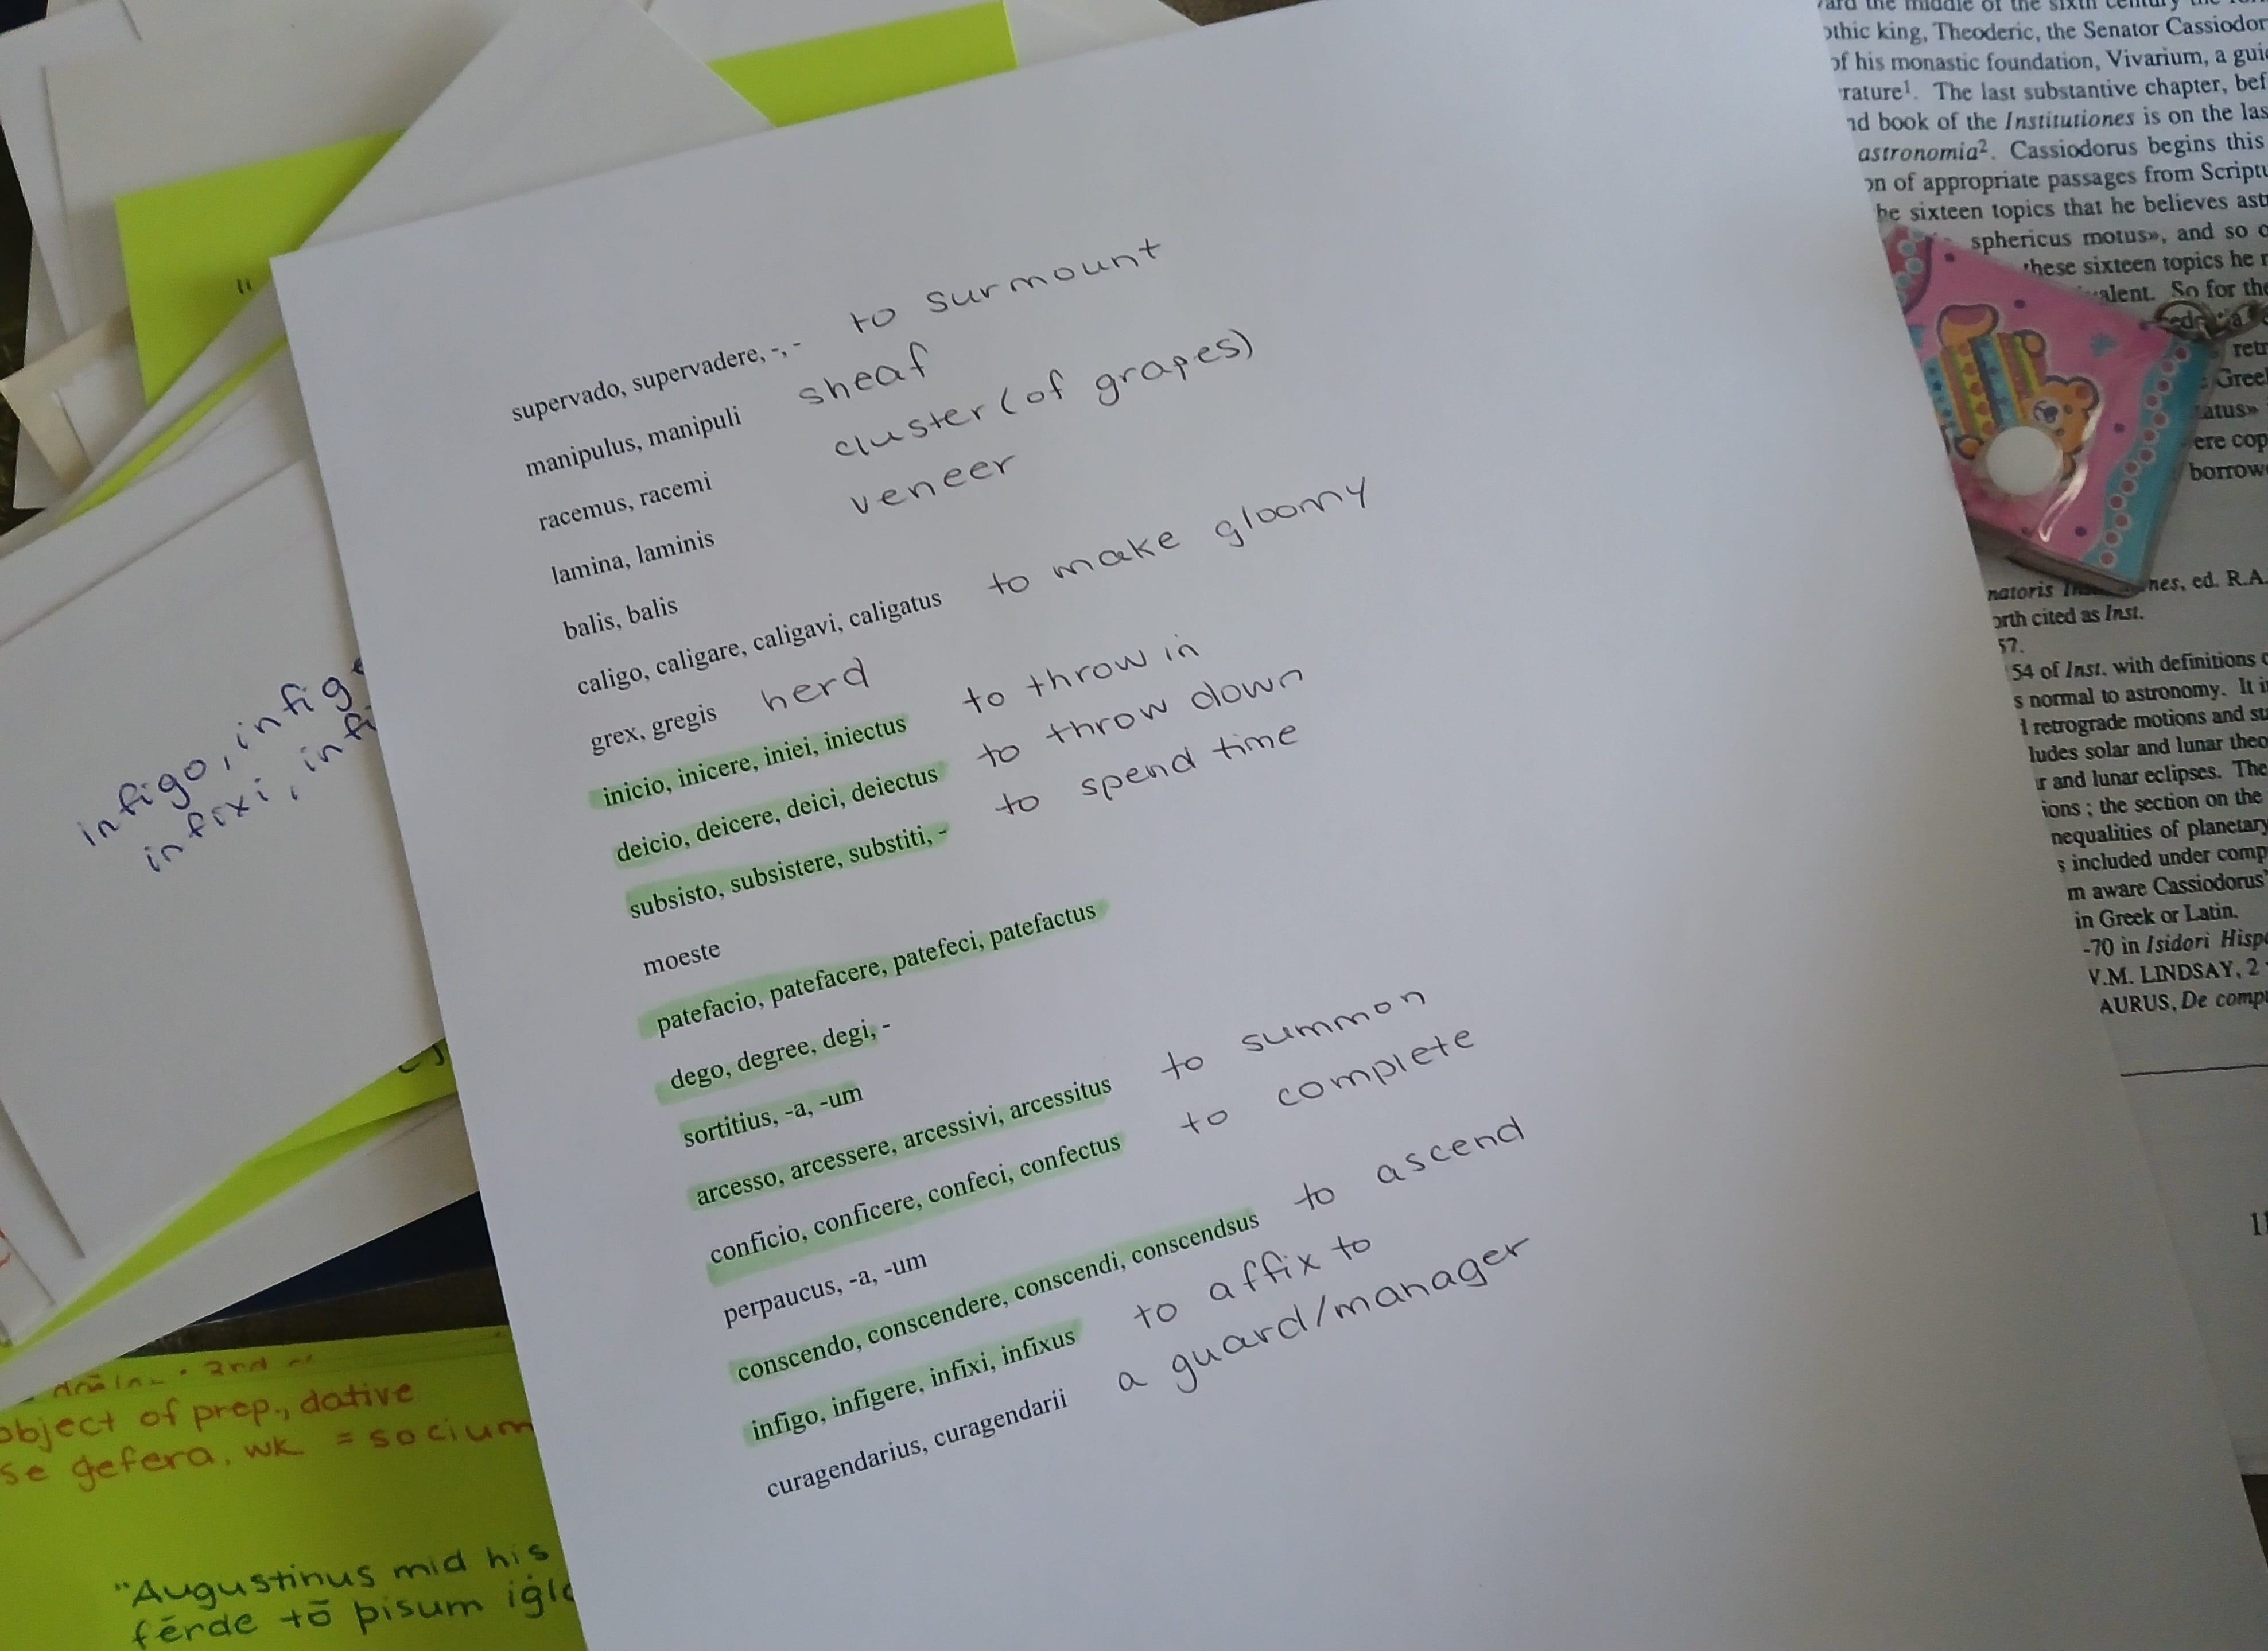 supervado, supervadere, -, - to surmount
manipulus, manipuli sheaf
racemus, racemi cluster (of grapes)
lamina, laminis veneer
balis, balis
caligo, caligare, caligavi, caligatus to make gloomy
grex, gregis herd
inicio, inicere, iniei, iniectus to throw in
deicio, deicere, deici, deiectus to throw down
subsisto, subsistere, substiti, - to spend time
moeste
patefacio, patefacere, patefeci, patefactus
dego, degree, degi, -
sortitius, -a, -um
arcesso, arcessere, arcessivi, arcessitus to summon
conficio, conficere, confeci, confectus to complete
perpaucus, -a, -um
conscendo, conscendere, conscendi, conscendsus to ascend
infigo, infigere, infixi, infixus to affix to
curagendarius, curagendarii a guard/manager
infigo, infige
infixi, infi
2nd
object of prep., dative
se gefera, wk = socium
"Augustinus mid his
fērde tō þisum iġla
ward the middle of the sixth century the
othic king, Theoderic, the Senator Cassiodor
of his monastic foundation, Vivarium, a gui
rature¹. The last substantive chapter, bef
nd book of the Institutiones is on the las
astronomia². Cassiodorus begins this
on of appropriate passages from Scriptu
he sixteen topics that he believes ast
sphericus motus», and so o
these sixteen topics he r
valent. So for the
retr
Greel
tatus»
ere cop
borrow
natoris nes, ed. R.A.
orth cited as Inst.
57.
54 of Inst. with definitions o
s normal to astronomy. It i
l retrograde motions and sta
ludes solar and lunar theo
r and lunar eclipses. The
ions ; the section on the
nequalities of planetary
s included under comp
m aware Cassiodorus'
in Greek or Latin.
-70 in Isidori Hispa
V.M. LINDSAY, 2
AURUS, De comp